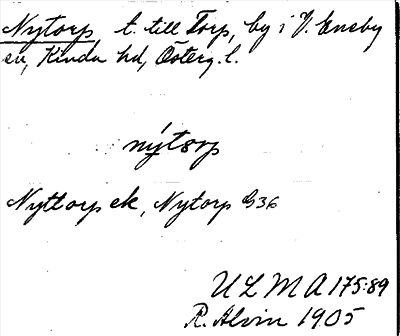 Nytorp, t. till Torp, by i V. Eneby
sn, Kinda hd, Österg. l.
nýtorp
Nyttorp ek, Nytorp G36
ULMA 175:89
R. Alvin 1905